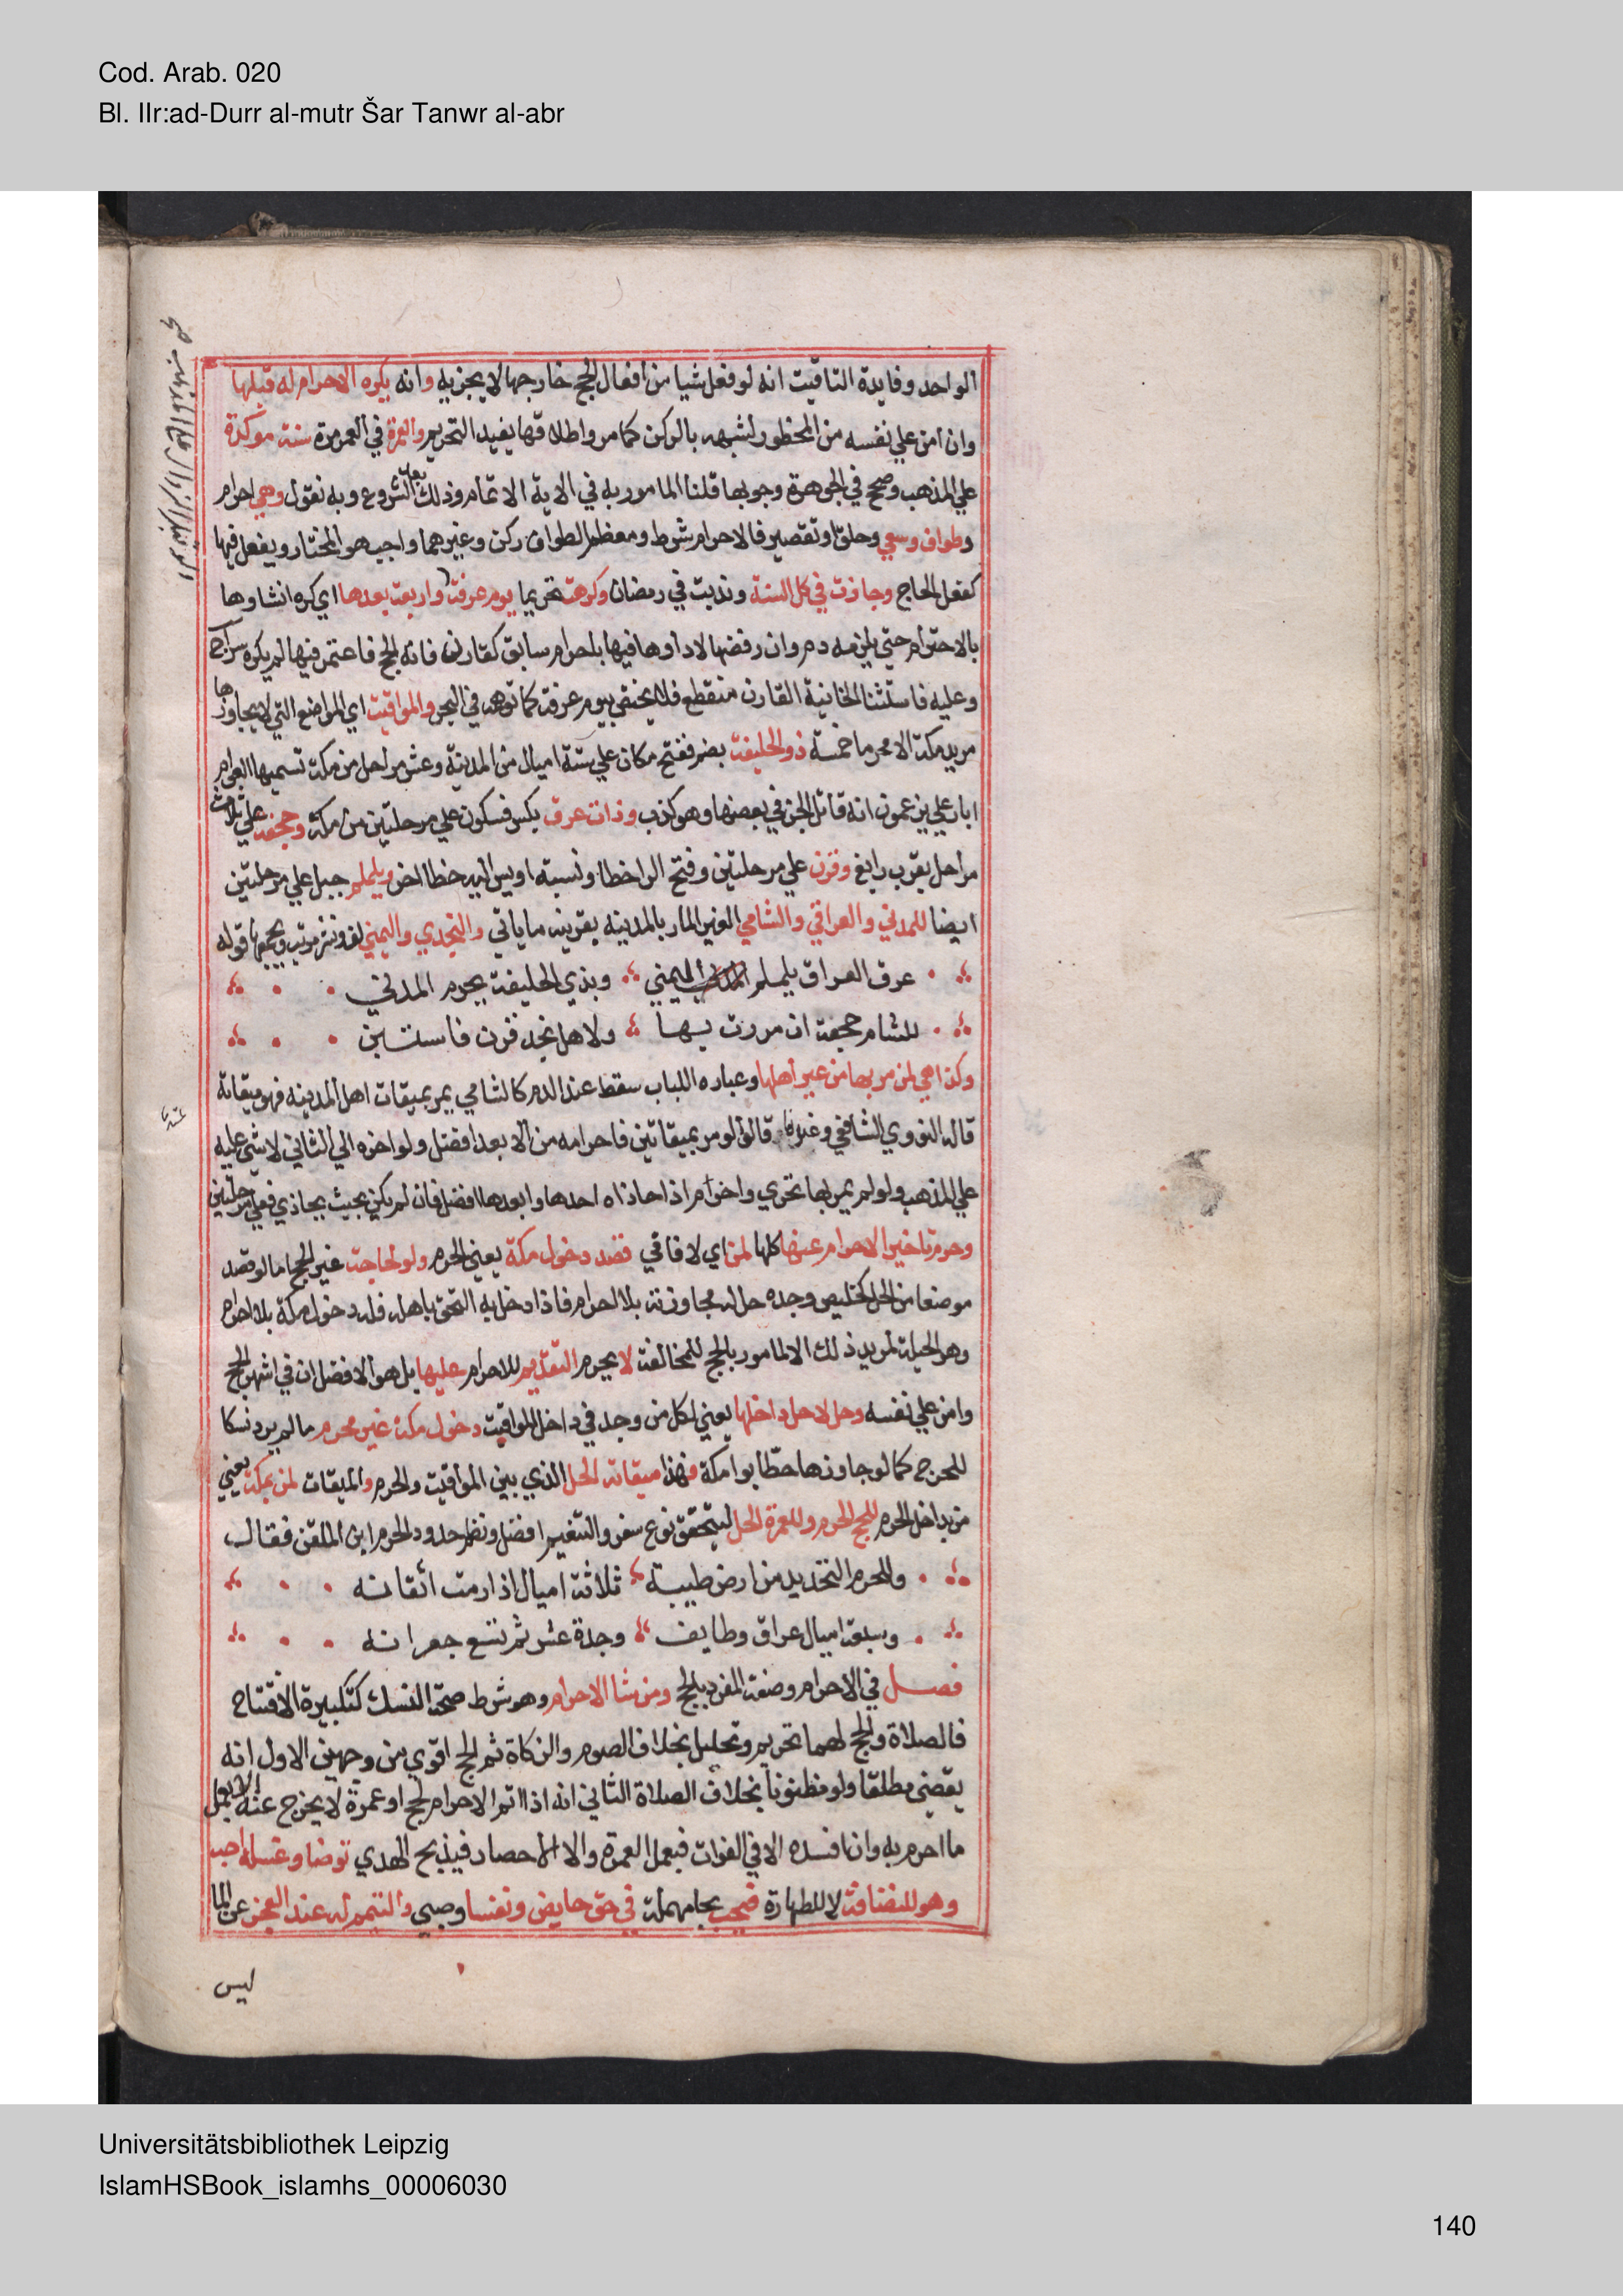 Cod. Arab. 020
Bl. IIr:ad-Durr al-mutr Šar Tanwr al-abr
الواحد وفايدة التاقيت انه لو فعل شيا من أفعال الحج خارجها لا يجزيه وانه يكره الاحرام له قبلها
وان امن علي نفسه من المحظور لشبهه بالركن كما مر واطلاقها يفيد التحريم والعمرة في العمر مرة سنة موكدة
علي المذهب وصحح في الجوهرة وجوبها قلنا المامور به في الاية الاتمام وذلك بعد الشروع وبه نقول وهي احرام
وطواف وسعي وحلق او تقصير فالاحرام شرط ومعظم الطواف ركن وغيرهما واجب هو المختار ويفعل فيها
كفعل الحاج وجازت في كل السنة وندبت في رمضان وكرهت تحريما يوم عرفة واربعة بعدها اي كره انشاوها
بالاحرام حتي يلزمه دم وان رفضها لا داوها فيها باحرام سابق كقارن فاته الحج فاعتمر فيها لم يكره سراج
وعليه فاستثنا الخانية القارن منقطع فلا يختص بيوم عرفة كما توهمه في البحر والمواقيت اي المواضع التي لا يجاوزها
مريد مكة الا محرما خمسة ذو الحليفة بضم ففتح مكان علي ستة اميال من المدينة وعشر مراحل من مكة تسميها العوام
ابار علي يزعمون انه قاتل الجن في بعضها وهو كذب وذات عرق بكسر فسكون علي مرحلتين من مكة وجحفة علي ثلاث
مراحل بقرب رابغ وقرن علي مرحلتين وفتح الرا خطا ونسبة اويس اليه خطا اخر ويلملم جبل علي مرحلتين
ايضا للمدني والعراقي والشامي الغير المار بالمدينة بقرينه ما ياتي والنجدي واليمني لف ونشر مرتب ويجمعها قوله
عرق العراق يلملم اليمني وبذي الحليفة يحرم المدني
للشام جحفة ان مررت بها ولاهل نجد قرن فاستبن
وكذا هي لمن مر بها من غير أهلها وعباره اللباب سقط عنه الدم كالشامي يمر بميقات اهل المدينه فهو ميقاته
قاله النووي الشافعي وغيره قالوا لو مر بميقاتين فاحرامه من الابعد افضل ولو اخره الي الثاني لا شي عليه
علي المذهب ولو لم يمر بها تحري واحرام اذا حاذاه احدها وابعدها افضل فان لم يكن بحيث يحاذي فعلي مرحلتين
وحرم تاخير الاحرام عنها كلها لمن اي لافاقي قصد دخول مكة يعني الحرم ولو لحاجة غير الحج اما لو قصد
موضعا من الحل كخليص وجده حل له مجاوزته بلا احرام فاذا دخل به التحق باهله فله دخول مكة بلا احرام
وهو الحيلة لمريد ذلك الا لمامور بالحج للمخالفة لا يحرم التقديم للاحرام عليها بل هو الافضل ان في اشهر الحج
وامن علي نفسه وحل لاهل داخلها يعني لكل من وجد في داخل المواقيت دخول مكة غير محرم ما لم يرد نسكا
للحرج كما لو جاوزها حطابوا مكة فهذا ميقاته الحل الذي بين المواقيت والحرم والميقات لمن بمكة يعني
من بداخل الحرم للحج الحرم وللعمرة الحل ليتحقق نوع سفر والتنعيم افضل ونظم حدود الحرم ابن الملقن فقال
وللحرم التحديد من ارض طيبة ثلاثة اميال اذا رمت اتقانه
وسبعة اميال عراق وطايف وجدة عشر ثم تسع جعرانه
فصل في الاحرام وصفة المفرد بالحج ومن شا الاحرام وهو شرط صحة النسك كتكبيرة الافتتاح
فالصلاة والحج لهما تحريم وتحليل بخلاف الصوم والزكاة ثم الحج اقوي من وجهين الاول انه
يقضي مطلقا ولو مظنونا بخلاف الصلاة الثاني انه اذا اتم الاحرام لحج او عمرة لا يخرج عنه الا بعمل
ما احرم به وان افسده الا في الفوات فبعمل العمرة والا الاحصار فيذبح الهدي توضا وغسله احب
وهو للنظافة لا للطهارة فيحب بحا مهملة في حق حايض ونفسا وصبي والتيمم له عند العجز عن الما
ليس
Universitätsbibliothek Leipzig
IslamHSBook_islamhs_00006030
140